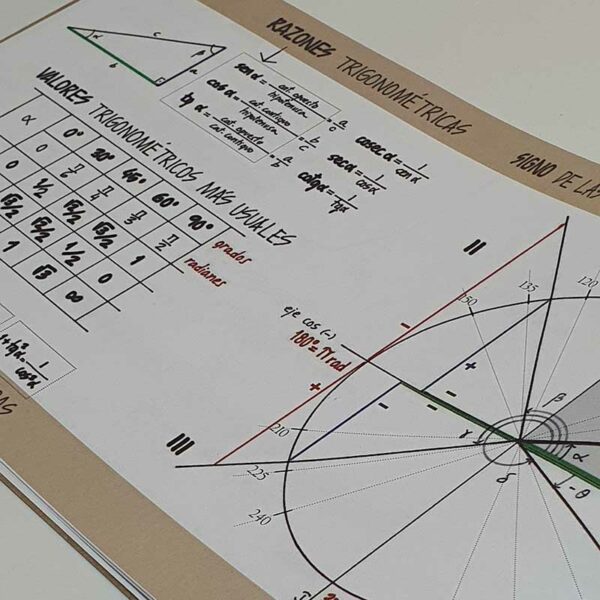 RAZONES TRIGONOMÉTRICAS
SIGNO DE LAS
c
α
β
b
a
sen α = cat. opuesto / hipotenusa = a/c
cos α = cat. contiguo / hipotenusa = b/c
tg α = cat. opuesto / cat. contiguo = a/b
cosec α = 1/cos α
sec α = 1/cos α
cotg α = 1/tg α
VALORES TRIGONOMÉTRICOS MÁS USUALES
α 0° 30° 45° 60° 90° grados
0 π/4 π/3 π/2 radianes
0 1/2 √2/2 √3/2 1
√3/2 √2/2 1/2 0
1 √3 ∞
II
150
135
120
eje cos (-)
180° = π rad
-
+
+
-
-
-
III
210
225
240
γ
β
α
δ
-θ